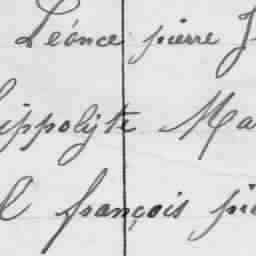 Léonce pierre J
hippolyte Ma
l françois pie